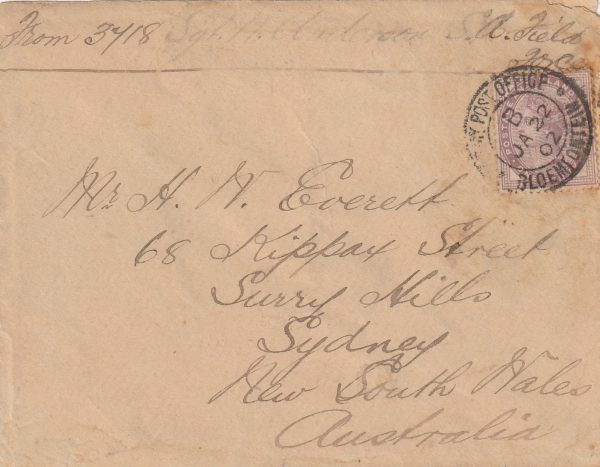 From 3718 Sgt. S. A. Field
Force
ARMY POST OFFICE
BLOEMFONTEIN
B
JA 22
02
POSTAGE
Mr H. W. Everett
68 Kippax Street
Surry Hills
Sydney
New South Wales
Australia